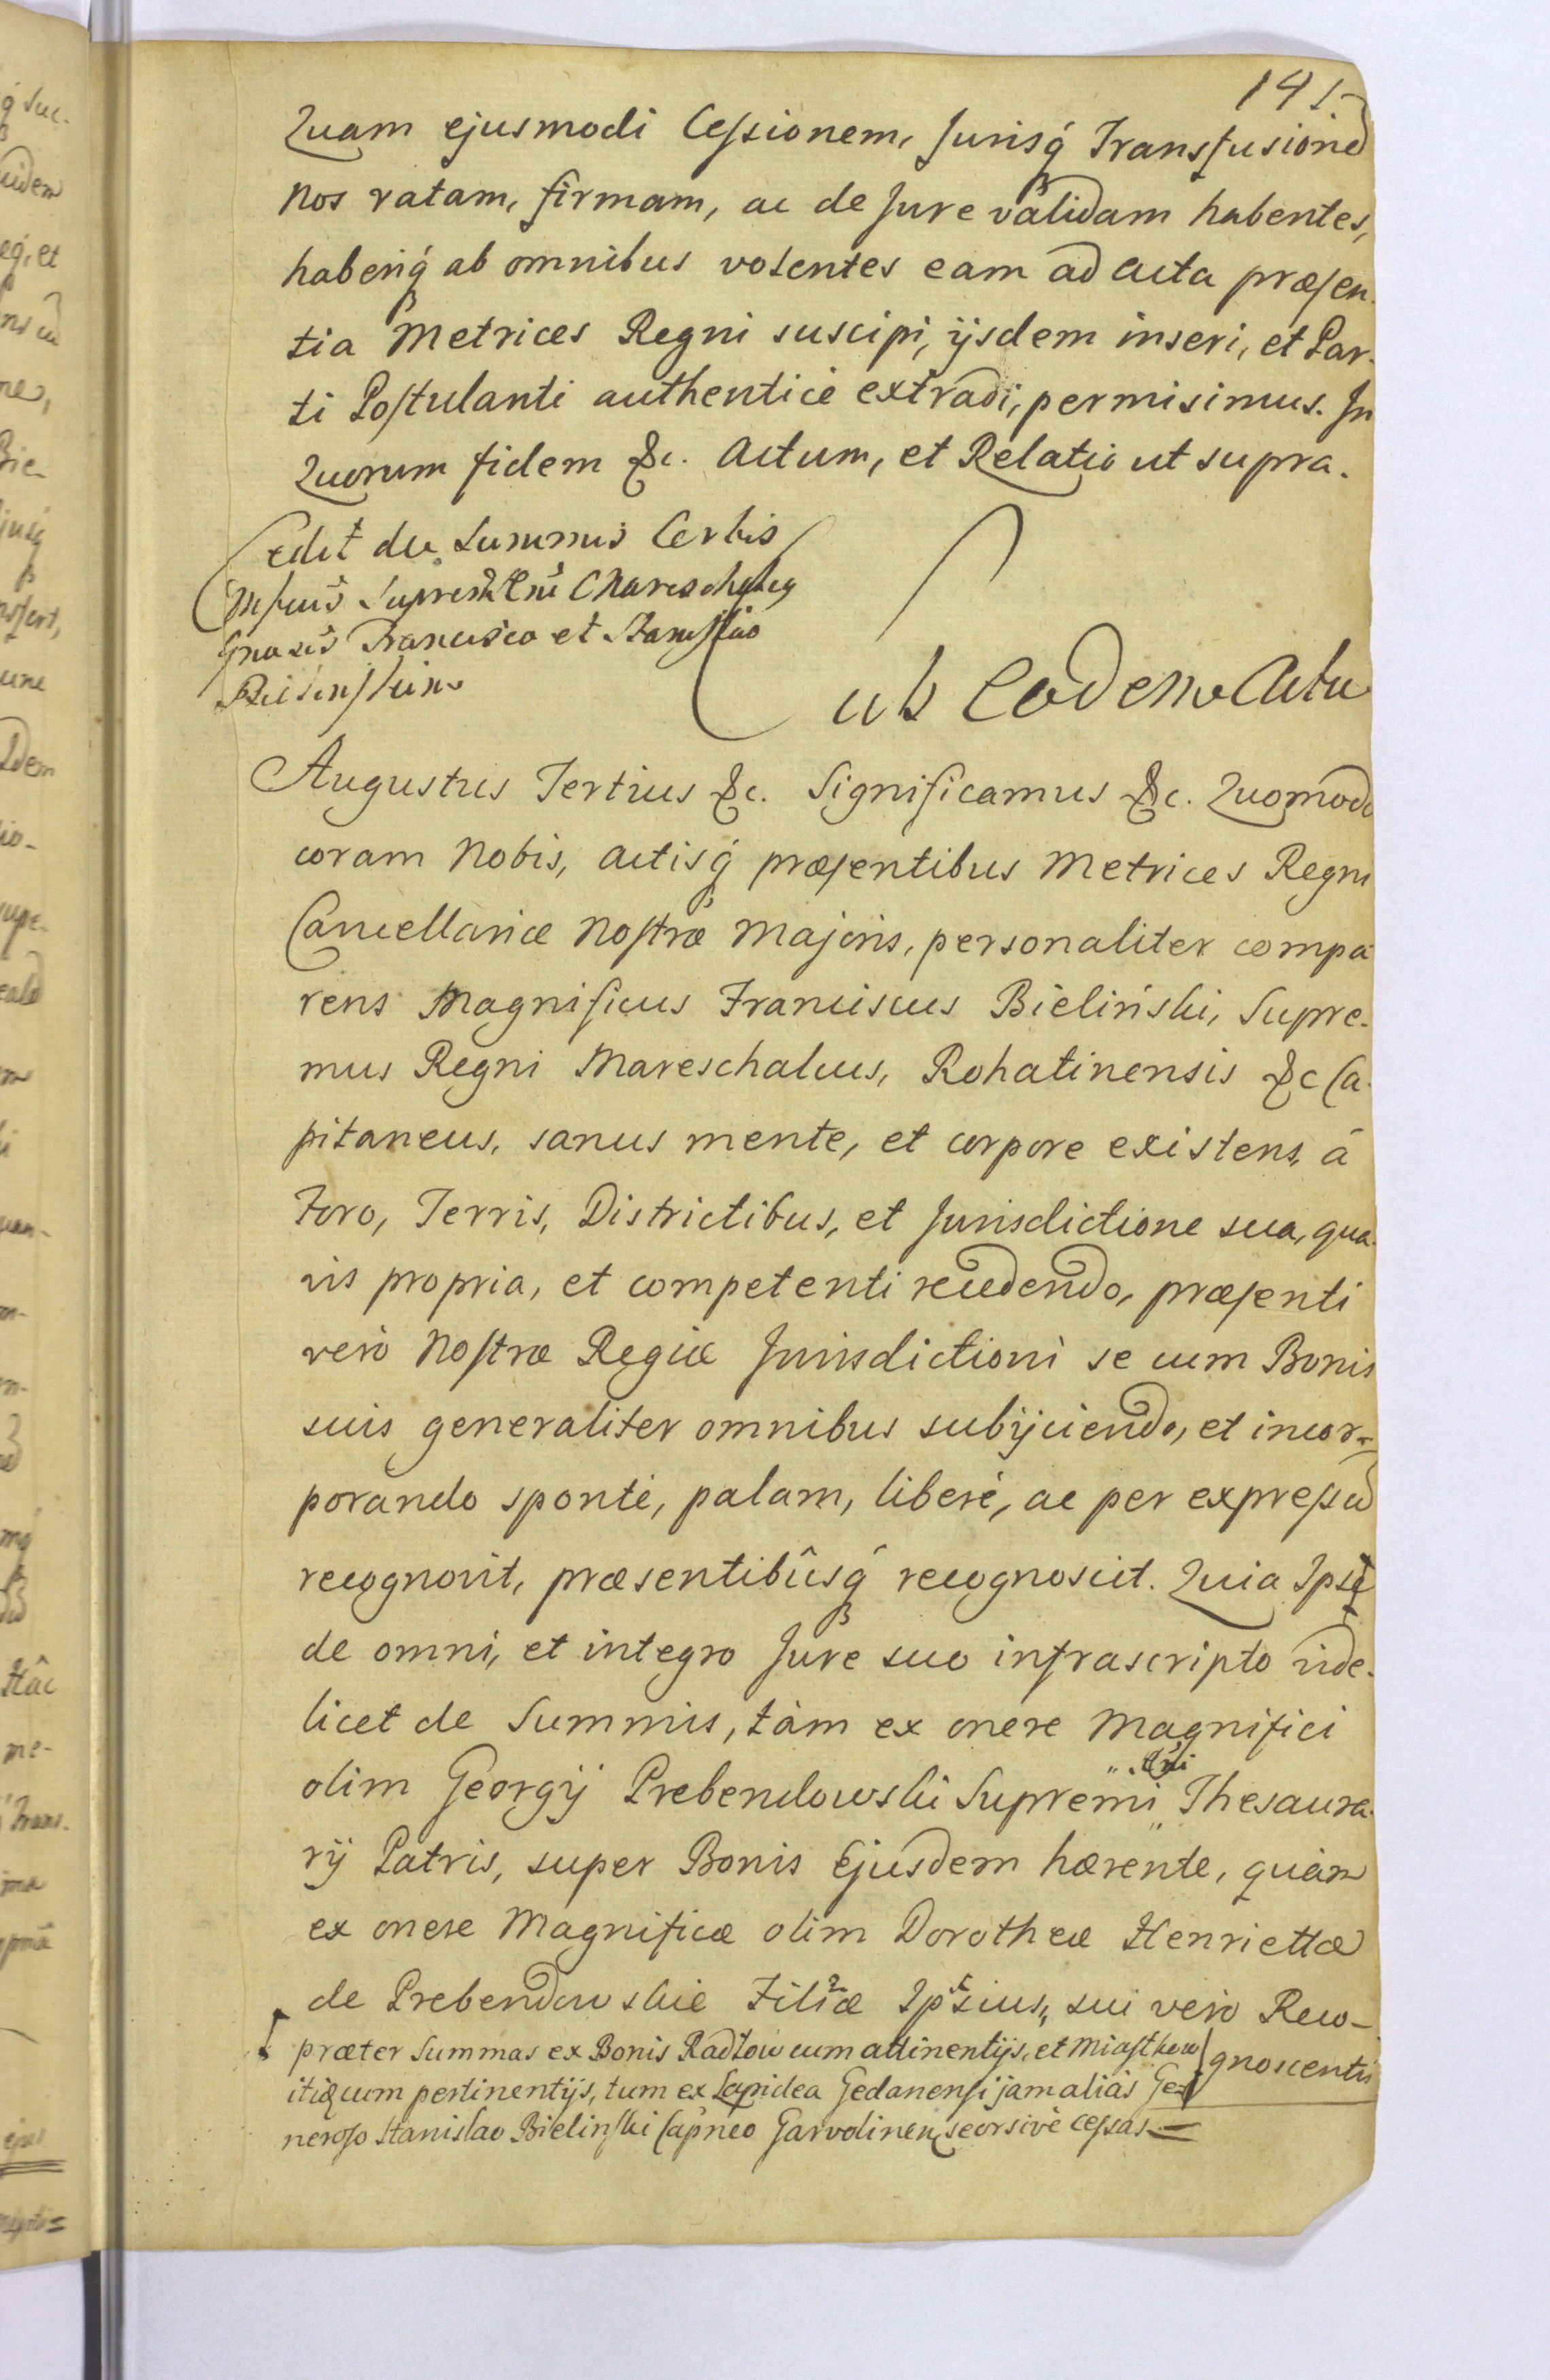 141
Quam ejusmodi Cessionem, Jurisq́ Transfusionē
Nos ratam, firmam, ac de Jure validam habentes,
haberiq́ ab omnibus volentes eam ad Acta præsen-
tia Metrices Regni suscipi, ijsdem inseri, et Par-
ti Postulanti authenticè extradi, permisimus. In
Quorum fidem &c. Actum, et Relatio ut supra.
Cedit de Summis Certis
Francisco et Stanislao
Bielinskim
Sub Eodem Actu
Augustus Tertius &c. Significamus &c. Quomodo
coram Nobis, Actisq́ præsentibus Metrices Regni
Cancellariæ Nostræ Majoris, personaliter compa-
rens Magnificus Franciscus Bieliński, Supre-
mus Regni Mareschalcus, Rohatinensis &c Ca-
pitaneus, sanus mente, et corpore existens, á
Foro, Terris, Districtibus, et Jurisdictione sua, qua-
vis propria, et competenti recedendo, præsenti
verò Nostræ Regiæ Jurisdictioni se cum Bonis
suis generaliter omnibus subijciendo, et incor-
porando spontè, palam, liberè, ac per expressū
recognovit, præsentibûsq́ recognoscit. Quia Ipse
de omni, et integro Jure suo infrascripto vide-
licet de Summis, tàm ex onere Magnifici
olim Georgij Prebendowski Supremi Rñi Thesaura-
rij Patris, super Bonis Ejusdem hærente, quàm
ex onere Magnificæ olim Dorotheæ Henriettæ
de Prebendowskie Filiæ Ipsius, sui verò Reco-
gnoscentis
præter Summas ex Bonis Radłow cum attinentijs, et Miasthow
itidẽ cum pertinentijs, tum ex Lapidea Gedanensi jam aliàs Ge-
neroso Stanislao Bielinski Capneo Garvolinen seorsivè cessas